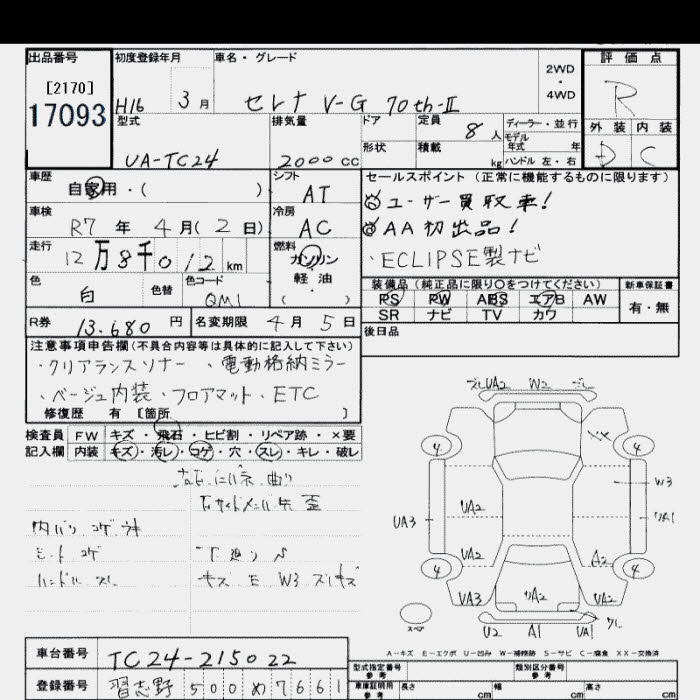 出品番号
[2170]
17093
初度登録年月
H16 3月
車名・グレード
セレナ V-G 70th-II
2WD
・
4WD
評価点
R
外装 内装
D C
型式
UA-TC24
排気量
2000 cc
ドア
形状
定員
8人
積載
kg
ディーラー・並行
モデル
年式 年
ハンドル 左・右
車歴
自家用・( )
シフト
AT
車検
R7年 4月(2日)
冷房
AC
走行
12万8千012 km
燃料
ガソリン
軽油
( )
色
白
色替
色コード
QM1
R券
13,680 円
名変期限 4月5日
セールスポイント (正常に機能するものに限ります)
ユーザー買取車!
AA初出品!
・ECLIPSE製ナビ
装備品 (純正品に限り○をつけてください)
PS PW ABS エアB AW
SR ナビ TV カワ
新車保証書
有・無
後日品
注意事項申告欄(不具合内容等は具体的に記入して下さい)
・クリアランスソナー ・電動格納ミラー
・ベージュ内装・フロアマット・ETC
修復歴 有 [箇所 ]
検査員 FW キズ・飛石・ヒビ割・リペア跡・×要
記入欄 内装 キズ・汚レ・コゲ・穴・スレ・キレ・破レ
内バリ コゲ ウキ
シート コゲ
ハンドル スレ
キズ E W3
UA2 W2
4 4
W3
UA3
UA2
UA2
A2
4 4
UA3
UA2
U2 A1 UA1
スペア
A-キズ E-エクボ U-凹み W-補修跡 S-サビ C-腐食 XX-交換済
車台番号 TC24-215022
登録番号 習志野 500 め 7661
型式指定番号
参考
類別区分番号
参考
車庫証明用
参考
長さ cm
幅 cm
高さ cm